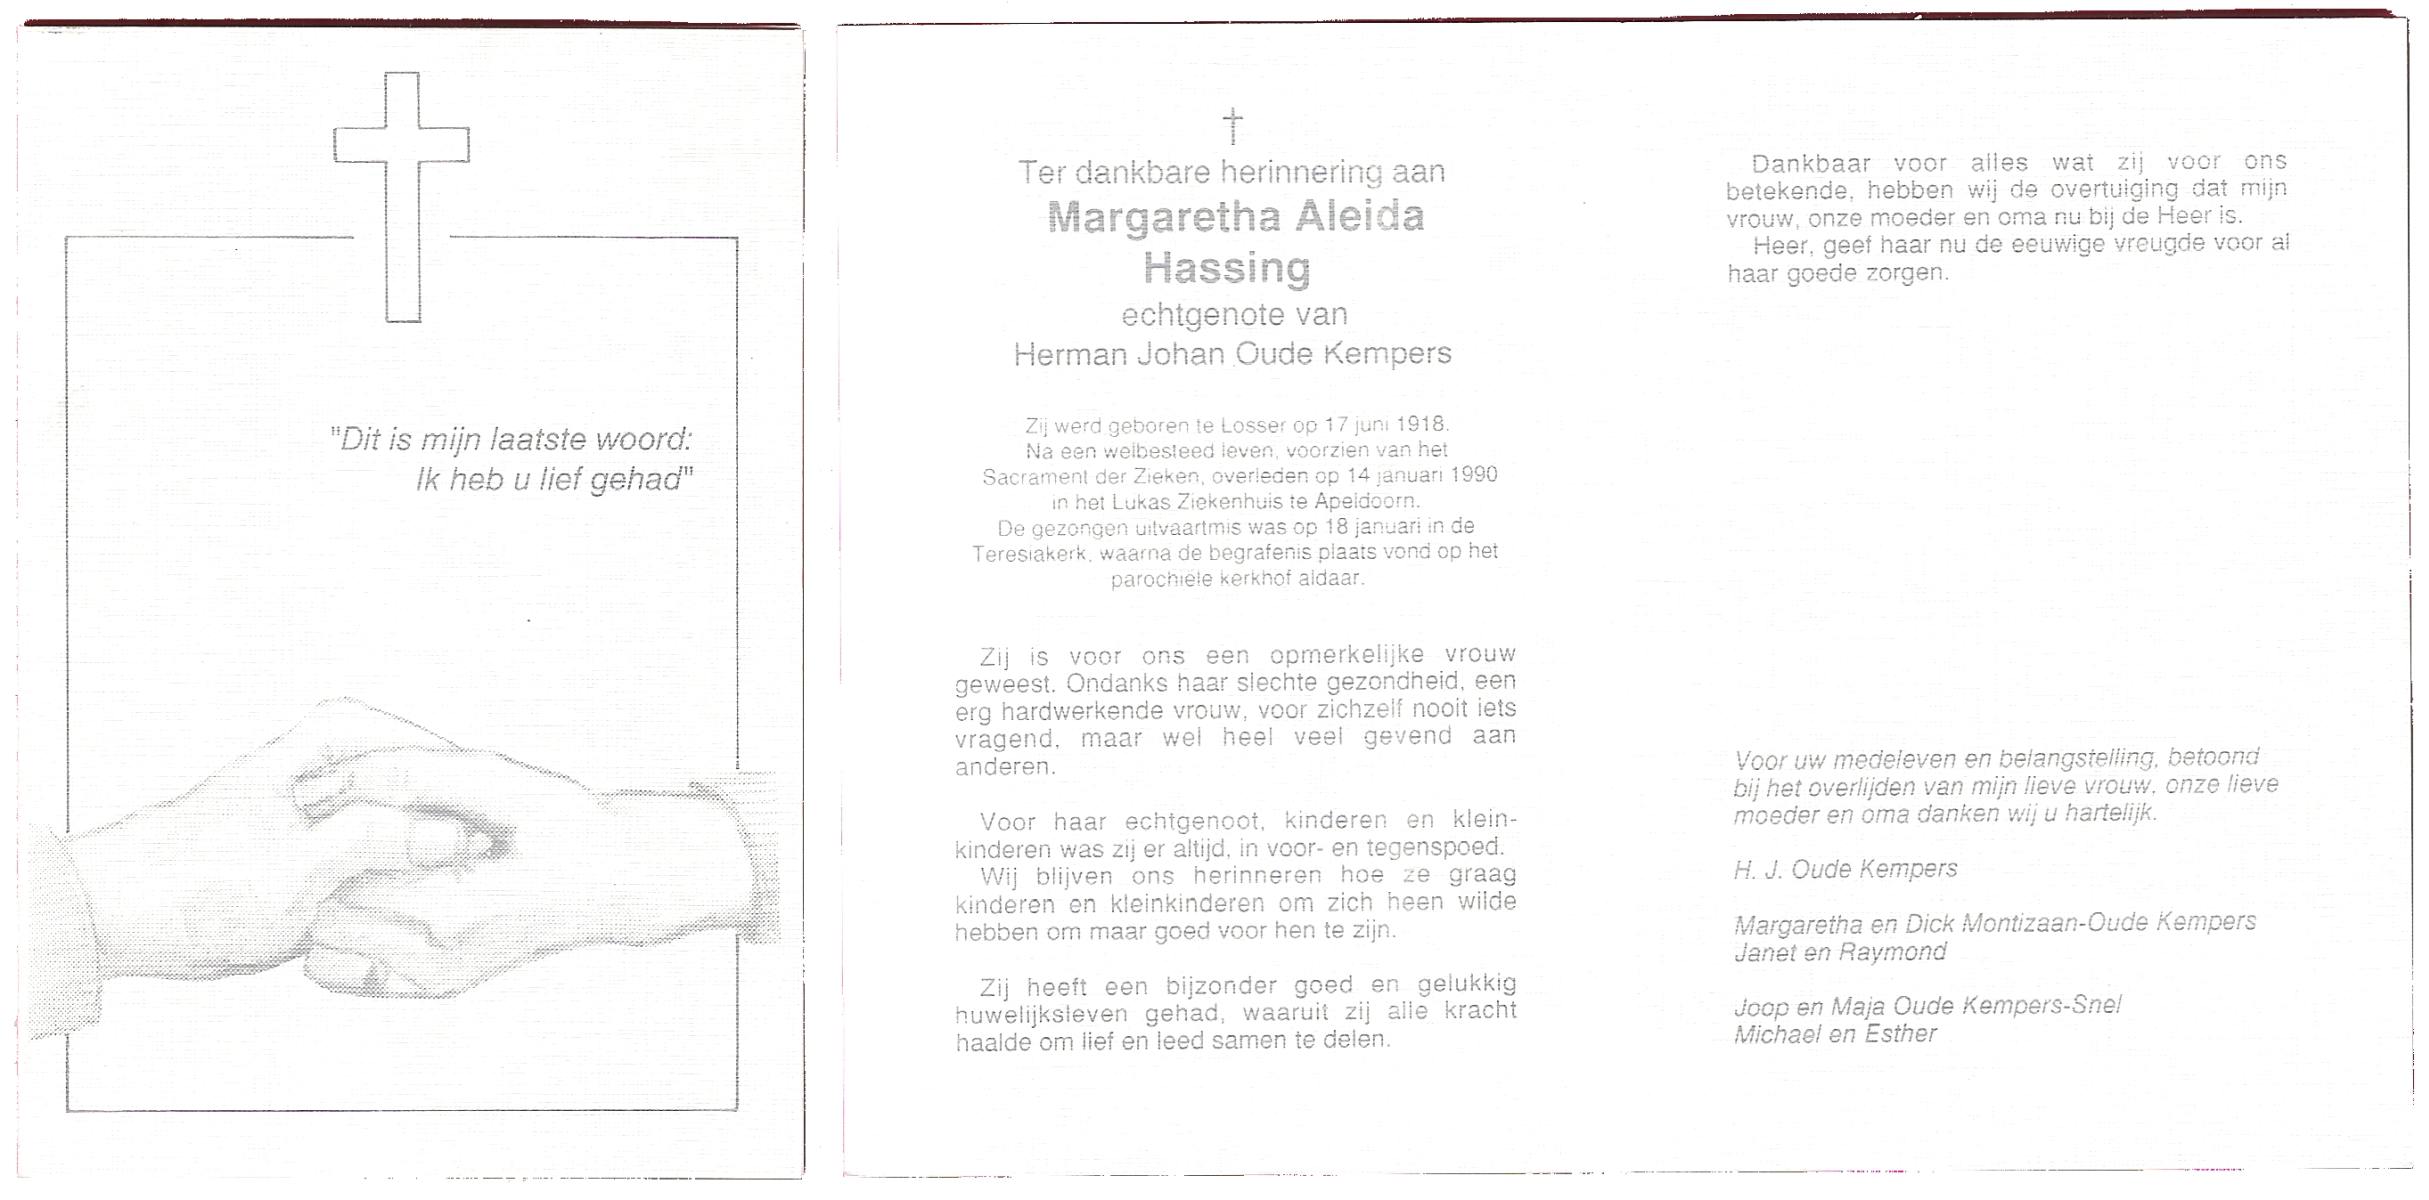 "Dit is mijn laatste woord:
Ik heb u lief gehad"
Ter dankbare herinnering aan
Margaretha Aleida
Hassing
echtgenote van
Herman Johan Oude Kempers
Zij werd geboren te Losser op 17 juni 1918.
Na een welbesteed leven, voorzien van het
Sacrament der Zieken, overleden op 14 januari 1990
in het Lukas Ziekenhuis te Apeldoorn.
De gezongen uitvaartmis was op 18 januari in de
Teresiakerk, waarna de begrafenis plaats vond op het
parochiële kerkhof aldaar.
Zij is voor ons een opmerkelijke vrouw
geweest. Ondanks haar slechte gezondheid, een
erg hardwerkende vrouw, voor zichzelf nooit iets
vragend, maar wel heel veel gevend aan
anderen.
Voor haar echtgenoot, kinderen en klein-
kinderen was zij er altijd, in voor- en tegenspoed.
Wij blijven ons herinneren hoe ze graag
kinderen en kleinkinderen om zich heen wilde
hebben om maar goed voor hen te zijn.
Zij heeft een bijzonder goed en gelukkig
huwelijksleven gehad, waaruit zij alle kracht
haalde om lief en leed samen te delen.
Dankbaar voor alles wat zij voor ons
betekende, hebben wij de overtuiging dat mijn
vrouw, onze moeder en oma nu bij de Heer is.
Heer, geef haar nu de eeuwige vreugde voor al
haar goede zorgen.
Voor uw medeleven en belangstelling, betoond
bij het overlijden van mijn lieve vrouw, onze lieve
moeder en oma danken wij u hartelijk.
H. J. Oude Kempers
Margaretha en Dick Montizaan-Oude Kempers
Janet en Raymond
Joop en Maja Oude Kempers-Snel
Michael en Esther